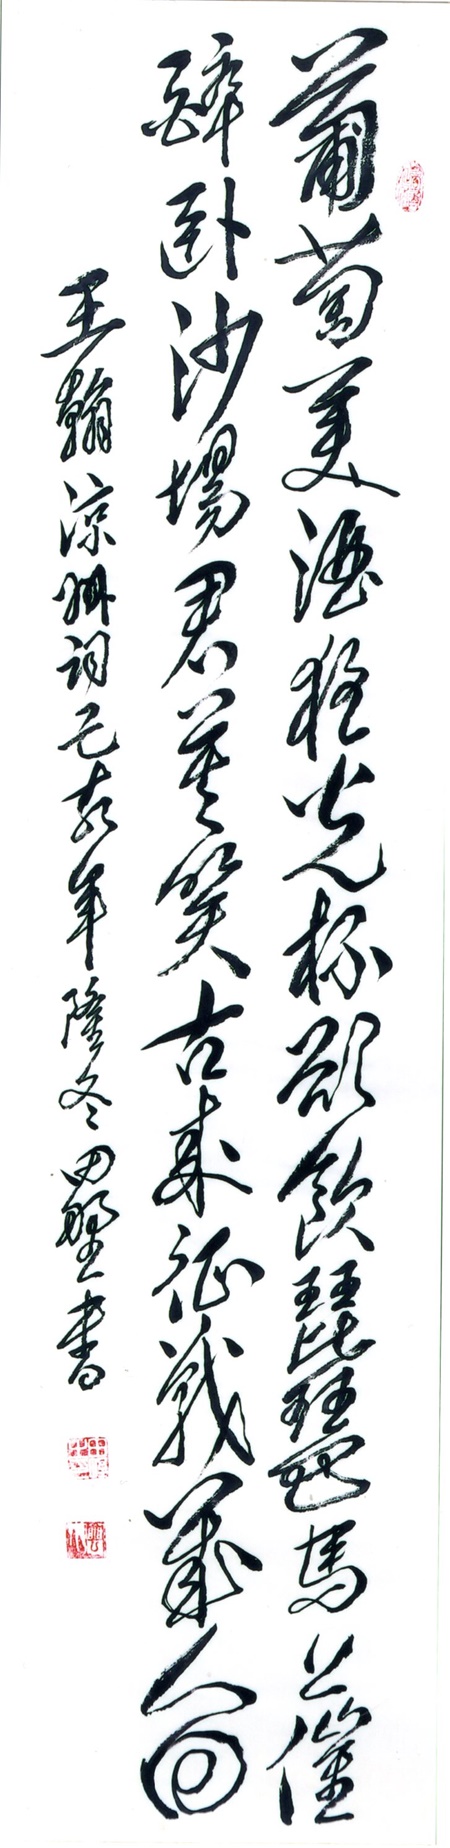 葡萄美酒夜光杯欲飲琵琶馬上催
醉卧沙場君莫笑古來征戰幾人回
王翰涼州詞己亥年隆冬田野書